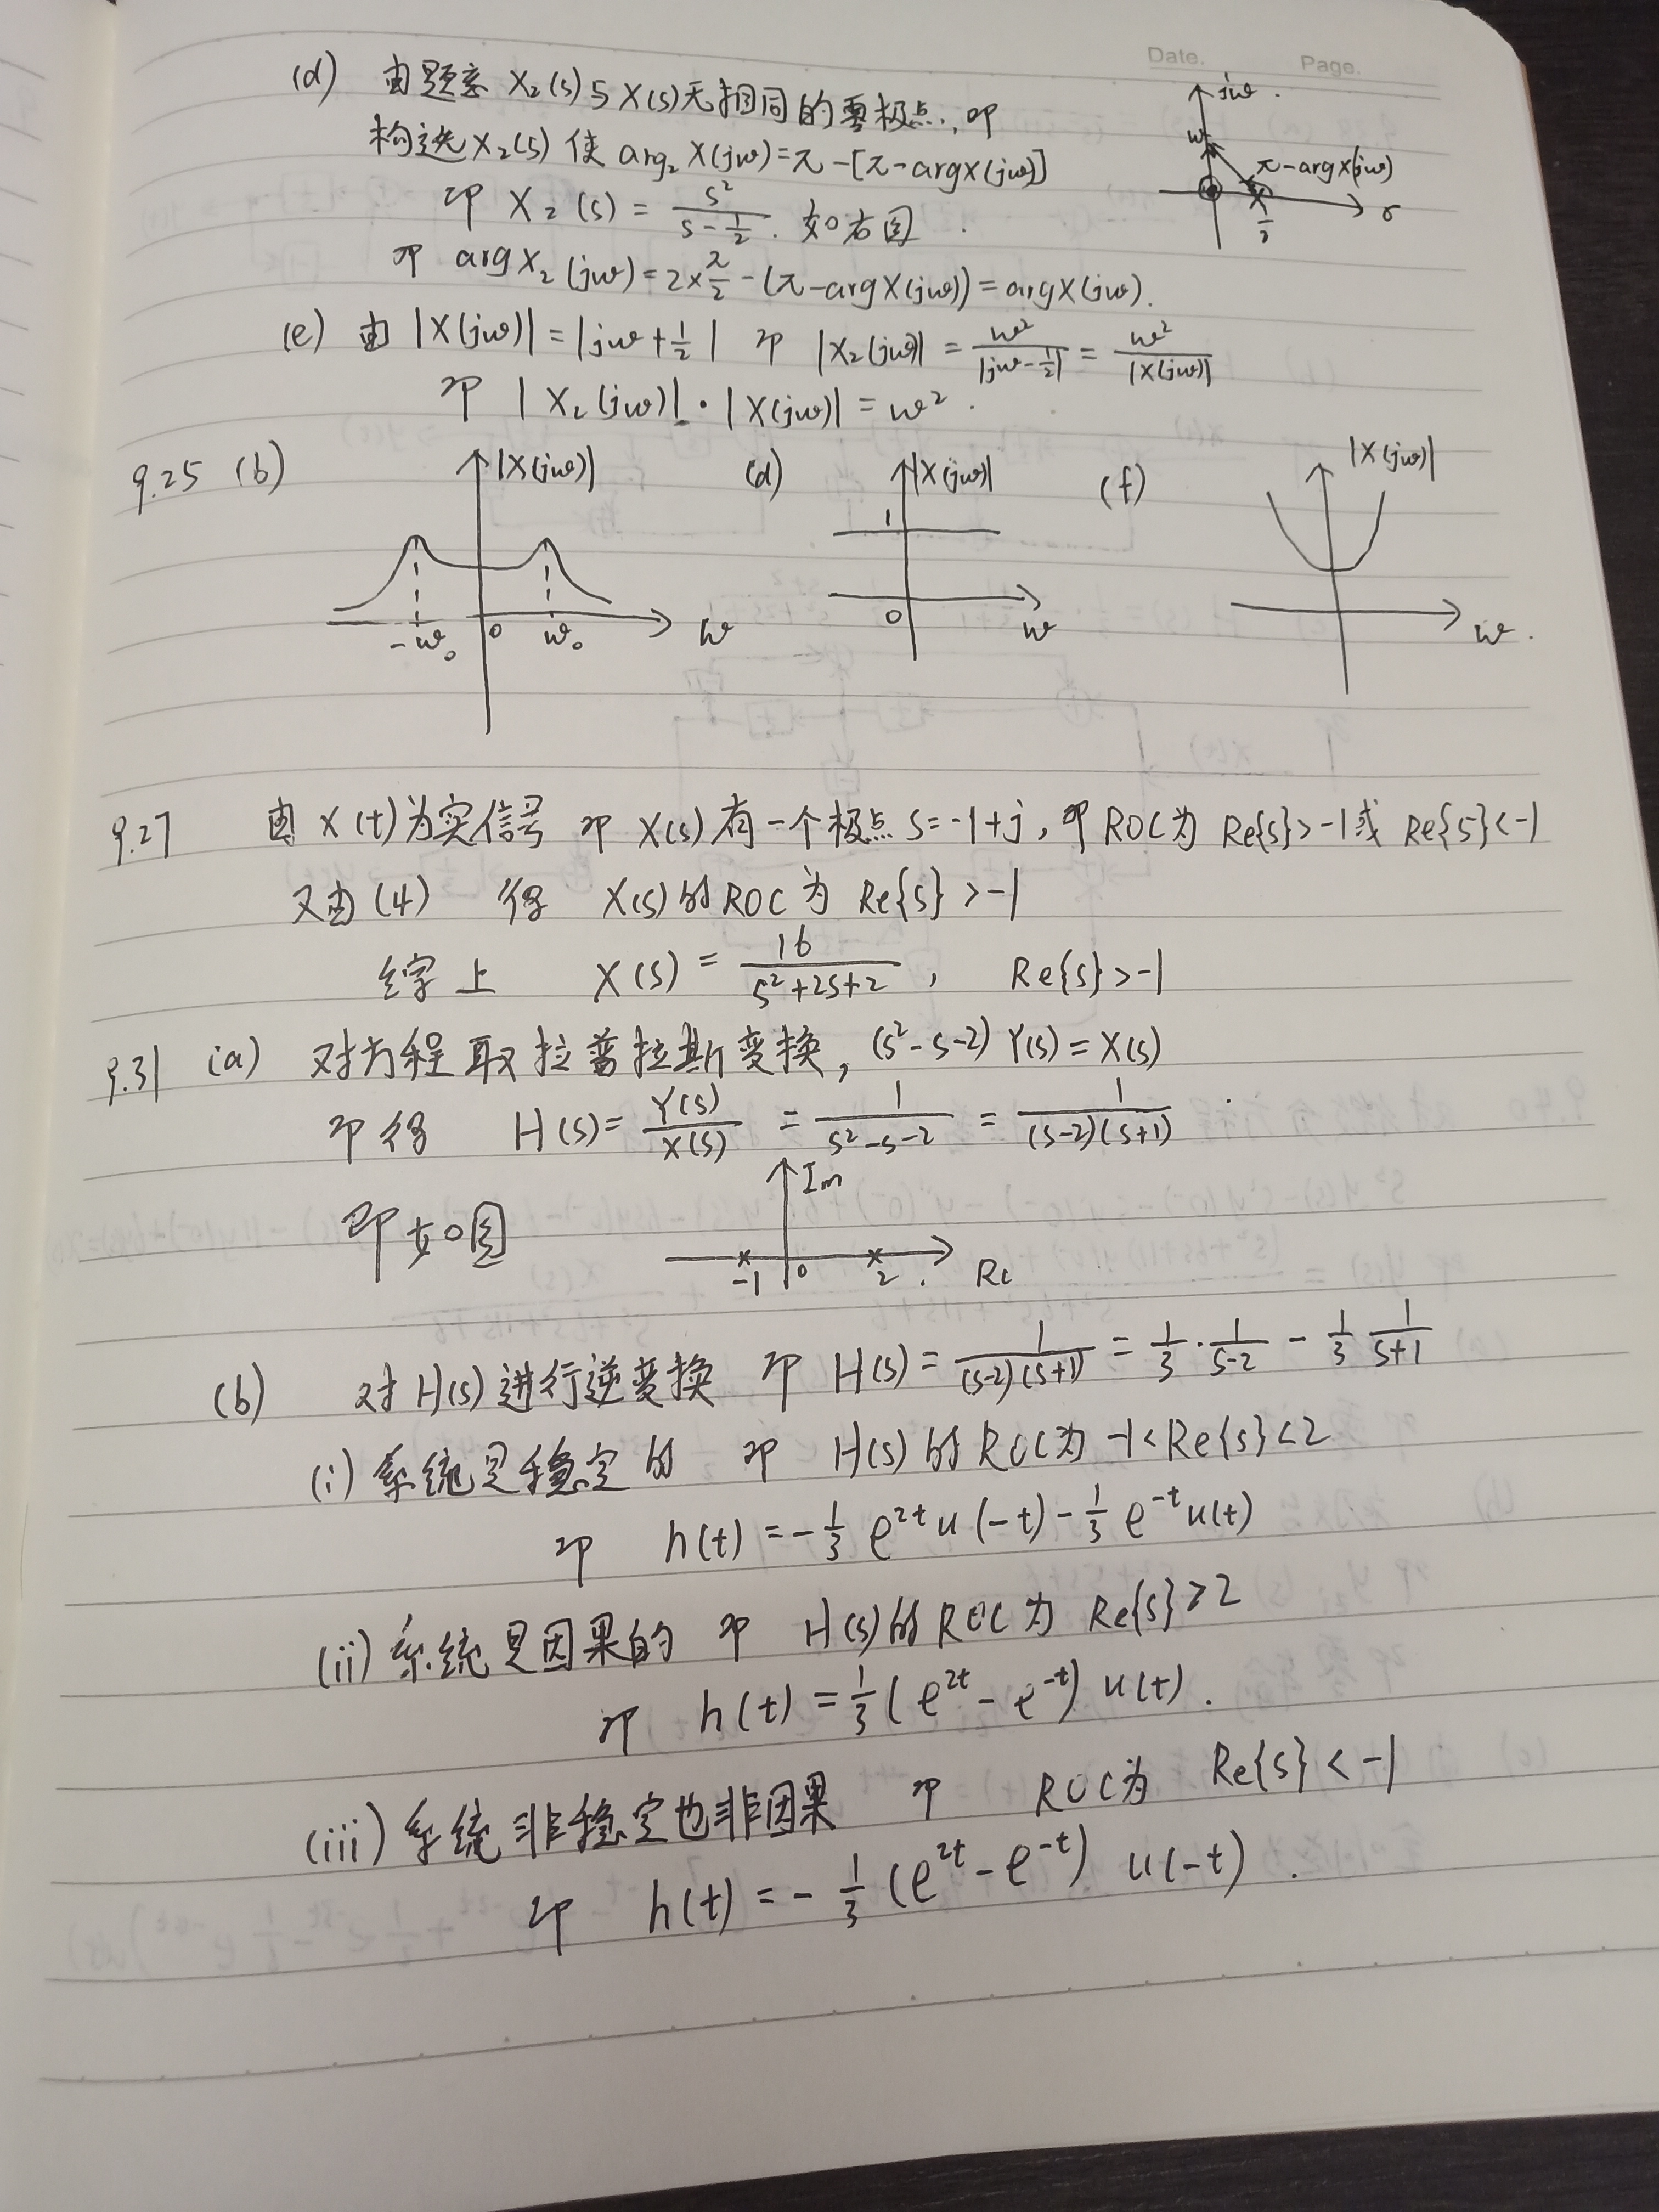 Date. Page.
(d) 由题意 X₂(s)与X(s)无相同的零极点, 即
构造X₂(s) 使 arg₂ X(jω)=π-[π-argX(jω)]
即 X₂(s) = s²/(s-1/2). 如右图
jω
ω
π-argX(jω)
1/2
σ
即 argX₂(jω)=2×π/2-(π-argX(jω))=argX(jω).
(e) 由 |X(jω)|=|jω+1/2| 即 |X₂(jω)| = ω²/|jω-1/2| = ω²/|X(jω)|
即 |X₂(jω)|·|X(jω)|=ω².
9.25 (b) |X(jω)| (d) |X(jω)| (f) |X(jω)|
1
-ω₀ 0 ω₀ ω 0 ω ω.
9.27 由 x(t)为实信号 即 X(s)有一个极点 s=-1+j, 即 ROC为 Re{s}>-1或 Re{s}<-1
又由(4) 得 X(s)的ROC为 Re{s}>-1
综上 X(s) = 16/(s²+2s+2), Re{s}>-1
9.31 (a) 对方程取拉普拉斯变换, (s²-s-2)Y(s)=X(s)
即得 H(s)=Y(s)/X(s) = 1/(s²-s-2) = 1/((s-2)(s+1)).
即如图
Im
-1 0 2. Re
(b) 对H(s)进行逆变换 即 H(s)=1/((s-2)(s+1)) = 1/3·1/(s-2) - 1/3 1/(s+1)
(i) 系统是稳定的 即 H(s)的ROC为 -1<Re{s}<2
即 h(t)=-1/3 e²ᵗu(-t)-1/3 e⁻ᵗu(t)
(ii) 系统是因果的 即 H(s)的ROC为 Re{s}>2
即 h(t)=1/3(e²ᵗ-e⁻ᵗ)u(t).
(iii) 系统非稳定也非因果 即 ROC为 Re{s}<-1
即 h(t)=-1/3(e²ᵗ-e⁻ᵗ)u(-t).